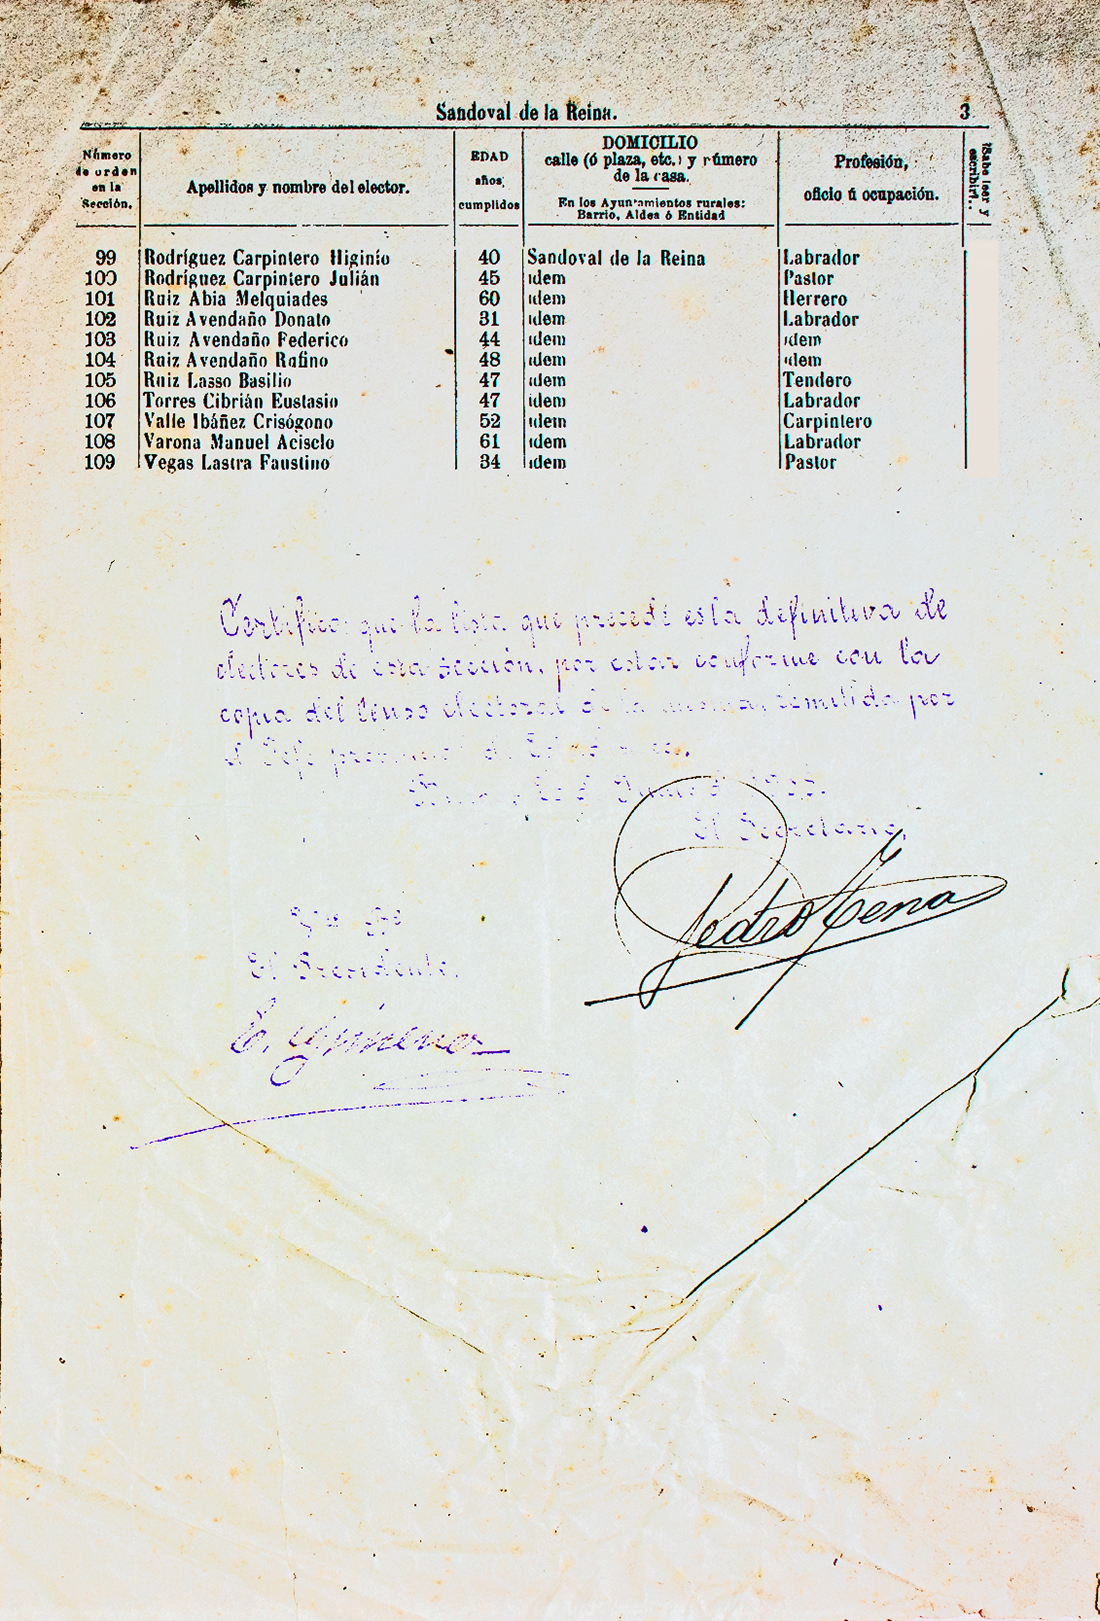 Sandoval de la Reina.
3
Número de orden en la Sección.
Apellidos y nombre del elector.
EDAD años cumplidos
DOMICILIO calle (ó plaza, etc.) y número de la casa. En los Ayuntamientos rurales: Barrio, Aldea ó Entidad
Profesión, oficio ú ocupación.
¿Sabe leer y escribir?
99 Rodríguez Carpintero Higinio 40 Sandoval de la Reina Labrador
100 Rodríguez Carpintero Julián 45 idem Pastor
101 Ruiz Abia Melquiades 60 idem Herrero
102 Ruiz Avendaño Donato 31 idem Labrador
103 Ruiz Avendaño Federico 44 idem idem
104 Ruiz Avendaño Rufino 48 idem idem
105 Ruiz Lasso Basilio 47 idem Tendero
106 Torres Cibrián Eustasio 47 idem Labrador
107 Valle Ibáñez Crisógono 52 idem Carpintero
108 Varona Manuel Acisclo 61 idem Labrador
109 Vegas Lastra Faustino 34 idem Pastor
Certifico: que la lista que precede es la definitiva de
electores de esta sección, por estar conforme con la
copia del Censo electoral de la misma, remitida por
el Jefe provincial de
El Secretario,
Pedro Tena
Vº Bº
El Presidente.
E. Gimeno